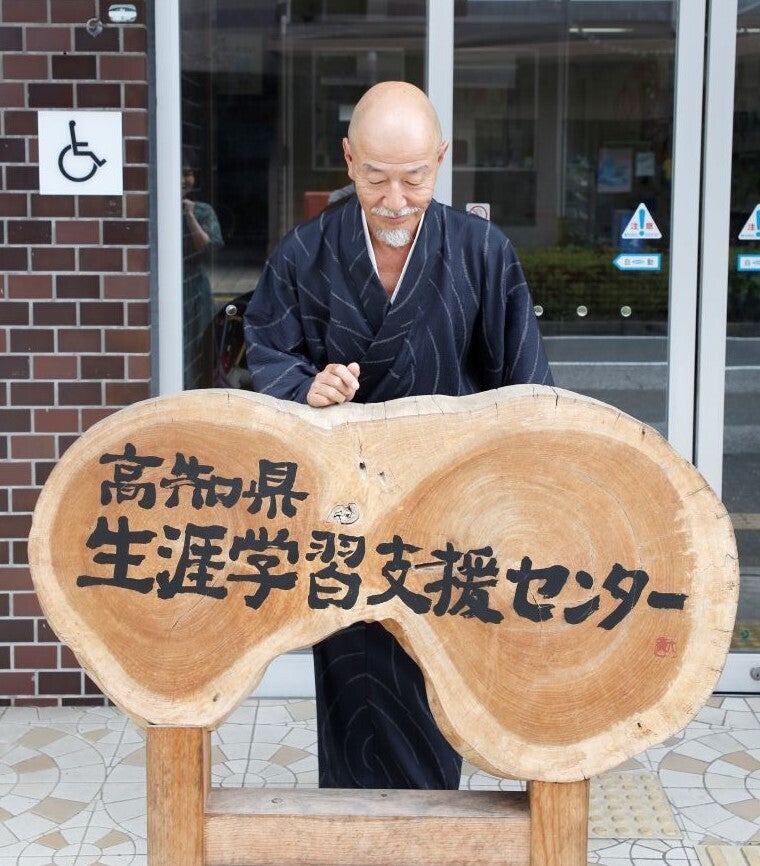 高知県
生涯学習支援センター
注意
自動
注意
自動